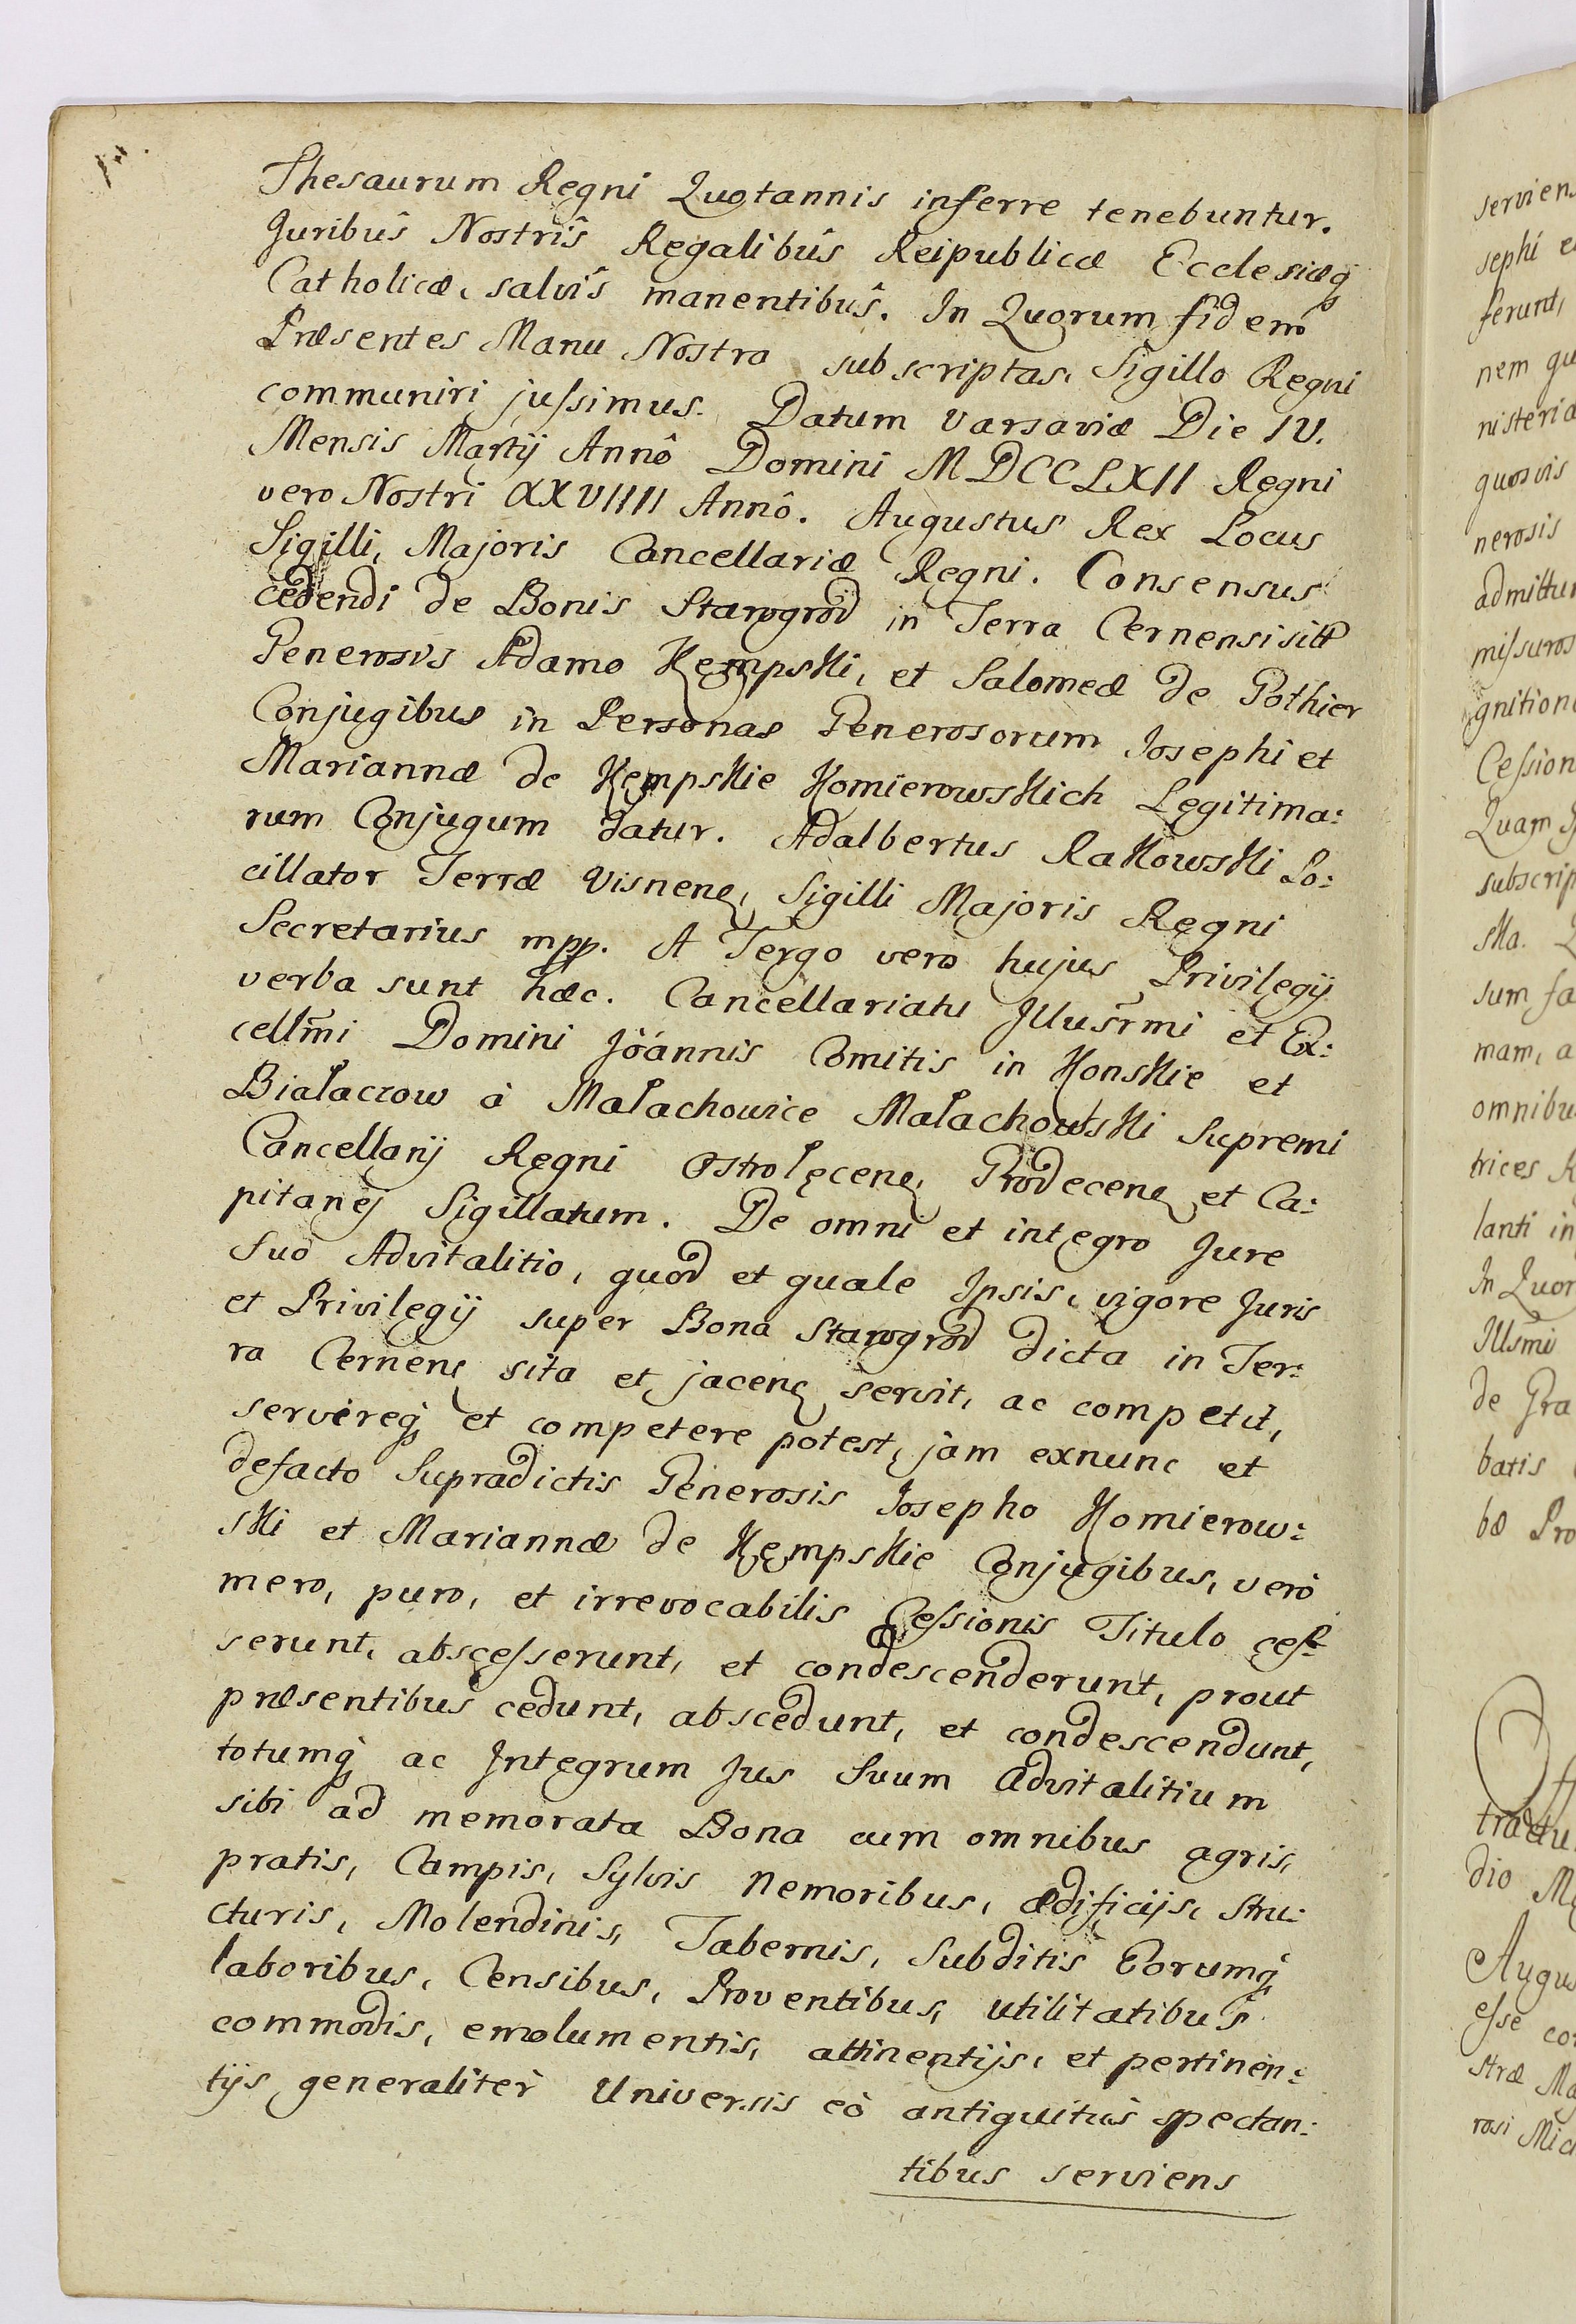 Thesaurum Regni Quotannis inferre tenebuntur.
Juribûs Nostrîs Regalibûs Reipublicæ Ecclesiæq́
Catholicæ, salvîs manentibûs. In Quorum fidem
Præsentes Manu Nostra subscriptas, Sigillo Regni
communiri jussimus. Datum Varsaviæ Die IV.
Mensis Martij Annô Domini MDCCLXII Regni
vero Nostri XXVIIII Annô. Augustus Rex Locus
Sigilli, Majoris Cancellariæ Regni. Consensus
cedendi de Bonis Starogrod in Terra Cernensi sitis
Generosis Adamo Kempski, et Salomeæ de Pothier
Conjugibus in Personas Generosorum Josephi et
Mariannæ de Kempskie Komierowskich Legitima:
rum Conjugum datur. Adalbertus Rakowski Po:
cillator Terræ Visnenę, Sigilli Majoris Regni
Secretarius mpp. A Tergo vero hujus Privilegij
verba sunt hæc. Cancellariatu Illusr̃mi et Ex:
cellm̃i Domini Jõánnis Comitis in Konskie et
Białaczow à Małachowice Małachowski Supremi
Cancellarij Regni Ostrolęcenę, Grodecenę et Ca:
pitanej Sigillatum. De omni et integro Jure
Suo Advitalitio, quod et quale Ipsis, vigore Juris
et Privilegij super Bona Starogrod dicta in Ter:
ra Cernenę sita et jacenę servit, ac competit,
servireq́ et competere potest, jam exnunc et
defacto Supradictis Generosis Josepho Komierow:
ski et Mariannæ de Kempskie Conjugibus, vero
mero, puro, et irrevocabilis Cessionis Titulo ces:
serunt, abscesserunt, et condescenderunt, prout
præsentibus cedunt, abscedunt, et condescendunt,
totumq́ ac Integrum Jus Suum Advitalitium
sibi ad memorata Bona cum omnibus agris,
pratis, Campis, Sylvis Nemoribus, ædificijs, stru:
cturis, Molendinis, Tabernis, Subditis Eorumq́
laboribus, Censibus, Proventibus, utilitatibus
commodis, emolumentis, attinentijs, et pertinen:
tijs generaliter Universis eò antiquitus spectan:
tibus serviens
serviens
sephi
ferunt,
nem
nisteria
quosvis
nerosis
admittu
missuros
gnition
Cession
Quam
subscrip
ska.
sum fa
mam, a
omnibu
trices
lanti in
In Quor
Illsmi
de Gra
batis
bæ Pro
tradu
dio
Augus
esse co
stræ Ma
rosi Mic